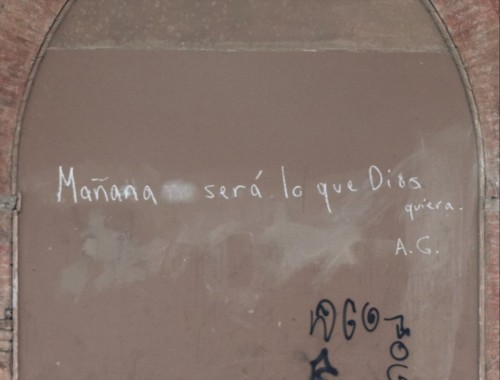 Mañana será lo que Dios
quiera.
A.G.